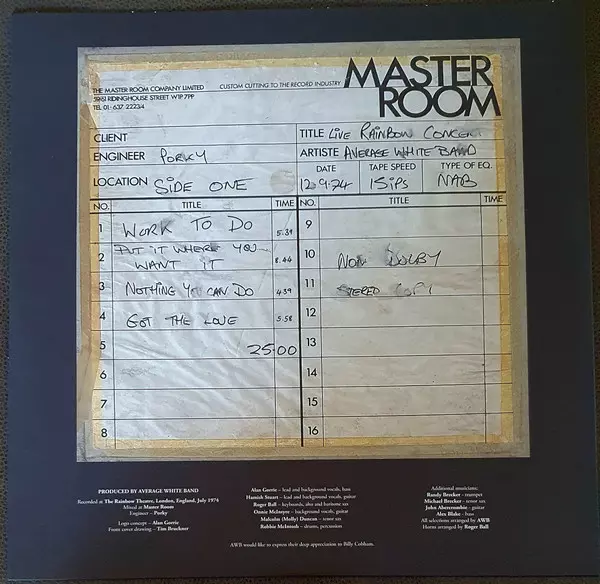 THE MASTER ROOM COMPANY LIMITED
59/61 RIDINGHOUSE STREET W1P 7PP
TEL 01-637 2223/4
CUSTOM CUTTING TO THE RECORD INDUSTRY
MASTER
ROOM
CLIENT
TITLE LIVE RAINBOW CONCERT
ENGINEER PORKY
ARTISTE AVERAGE WHITE BAND
LOCATION SIDE ONE
DATE TAPE SPEED TYPE OF EQ.
12.9.74 15iPS NAB
NO. TITLE TIME NO. TITLE TIME
1 WORK TO DO 5.39 9
2 PUT IT WHERE YOU
WANT IT 8.44 10 NON DOLBY
3 NOTHING YOU CAN DO 4.39 11 STEREO COPY
4 GOT THE LOVE 5.58 12
5 25.00 13
6 14
7 15
8 16
PRODUCED BY AVERAGE WHITE BAND
Recorded at The Rainbow Theatre, London, England, July 1974
Mixed at Master Room
Engineer – Porky
Logo concept – Alan Gorrie
Front cover drawing – Tim Bruckner
Alan Gorrie – lead and background vocals, bass
Hamish Stuart – lead and background vocals, guitar
Roger Ball – keyboards, alto and baritone sax
Onnie McIntyre – background vocals, guitar
Malcolm (Molly) Duncan – tenor sax
Robbie McIntosh – drums, percussion
Additional musicians:
Randy Brecker - trumpet
Michael Brecker - tenor sax
John Abercrombie - guitar
Alex Blake - bass
All selections arranged by AWB
Horns arranged by Roger Ball
AWB would like to express their deep appreciation to Billy Cobham.